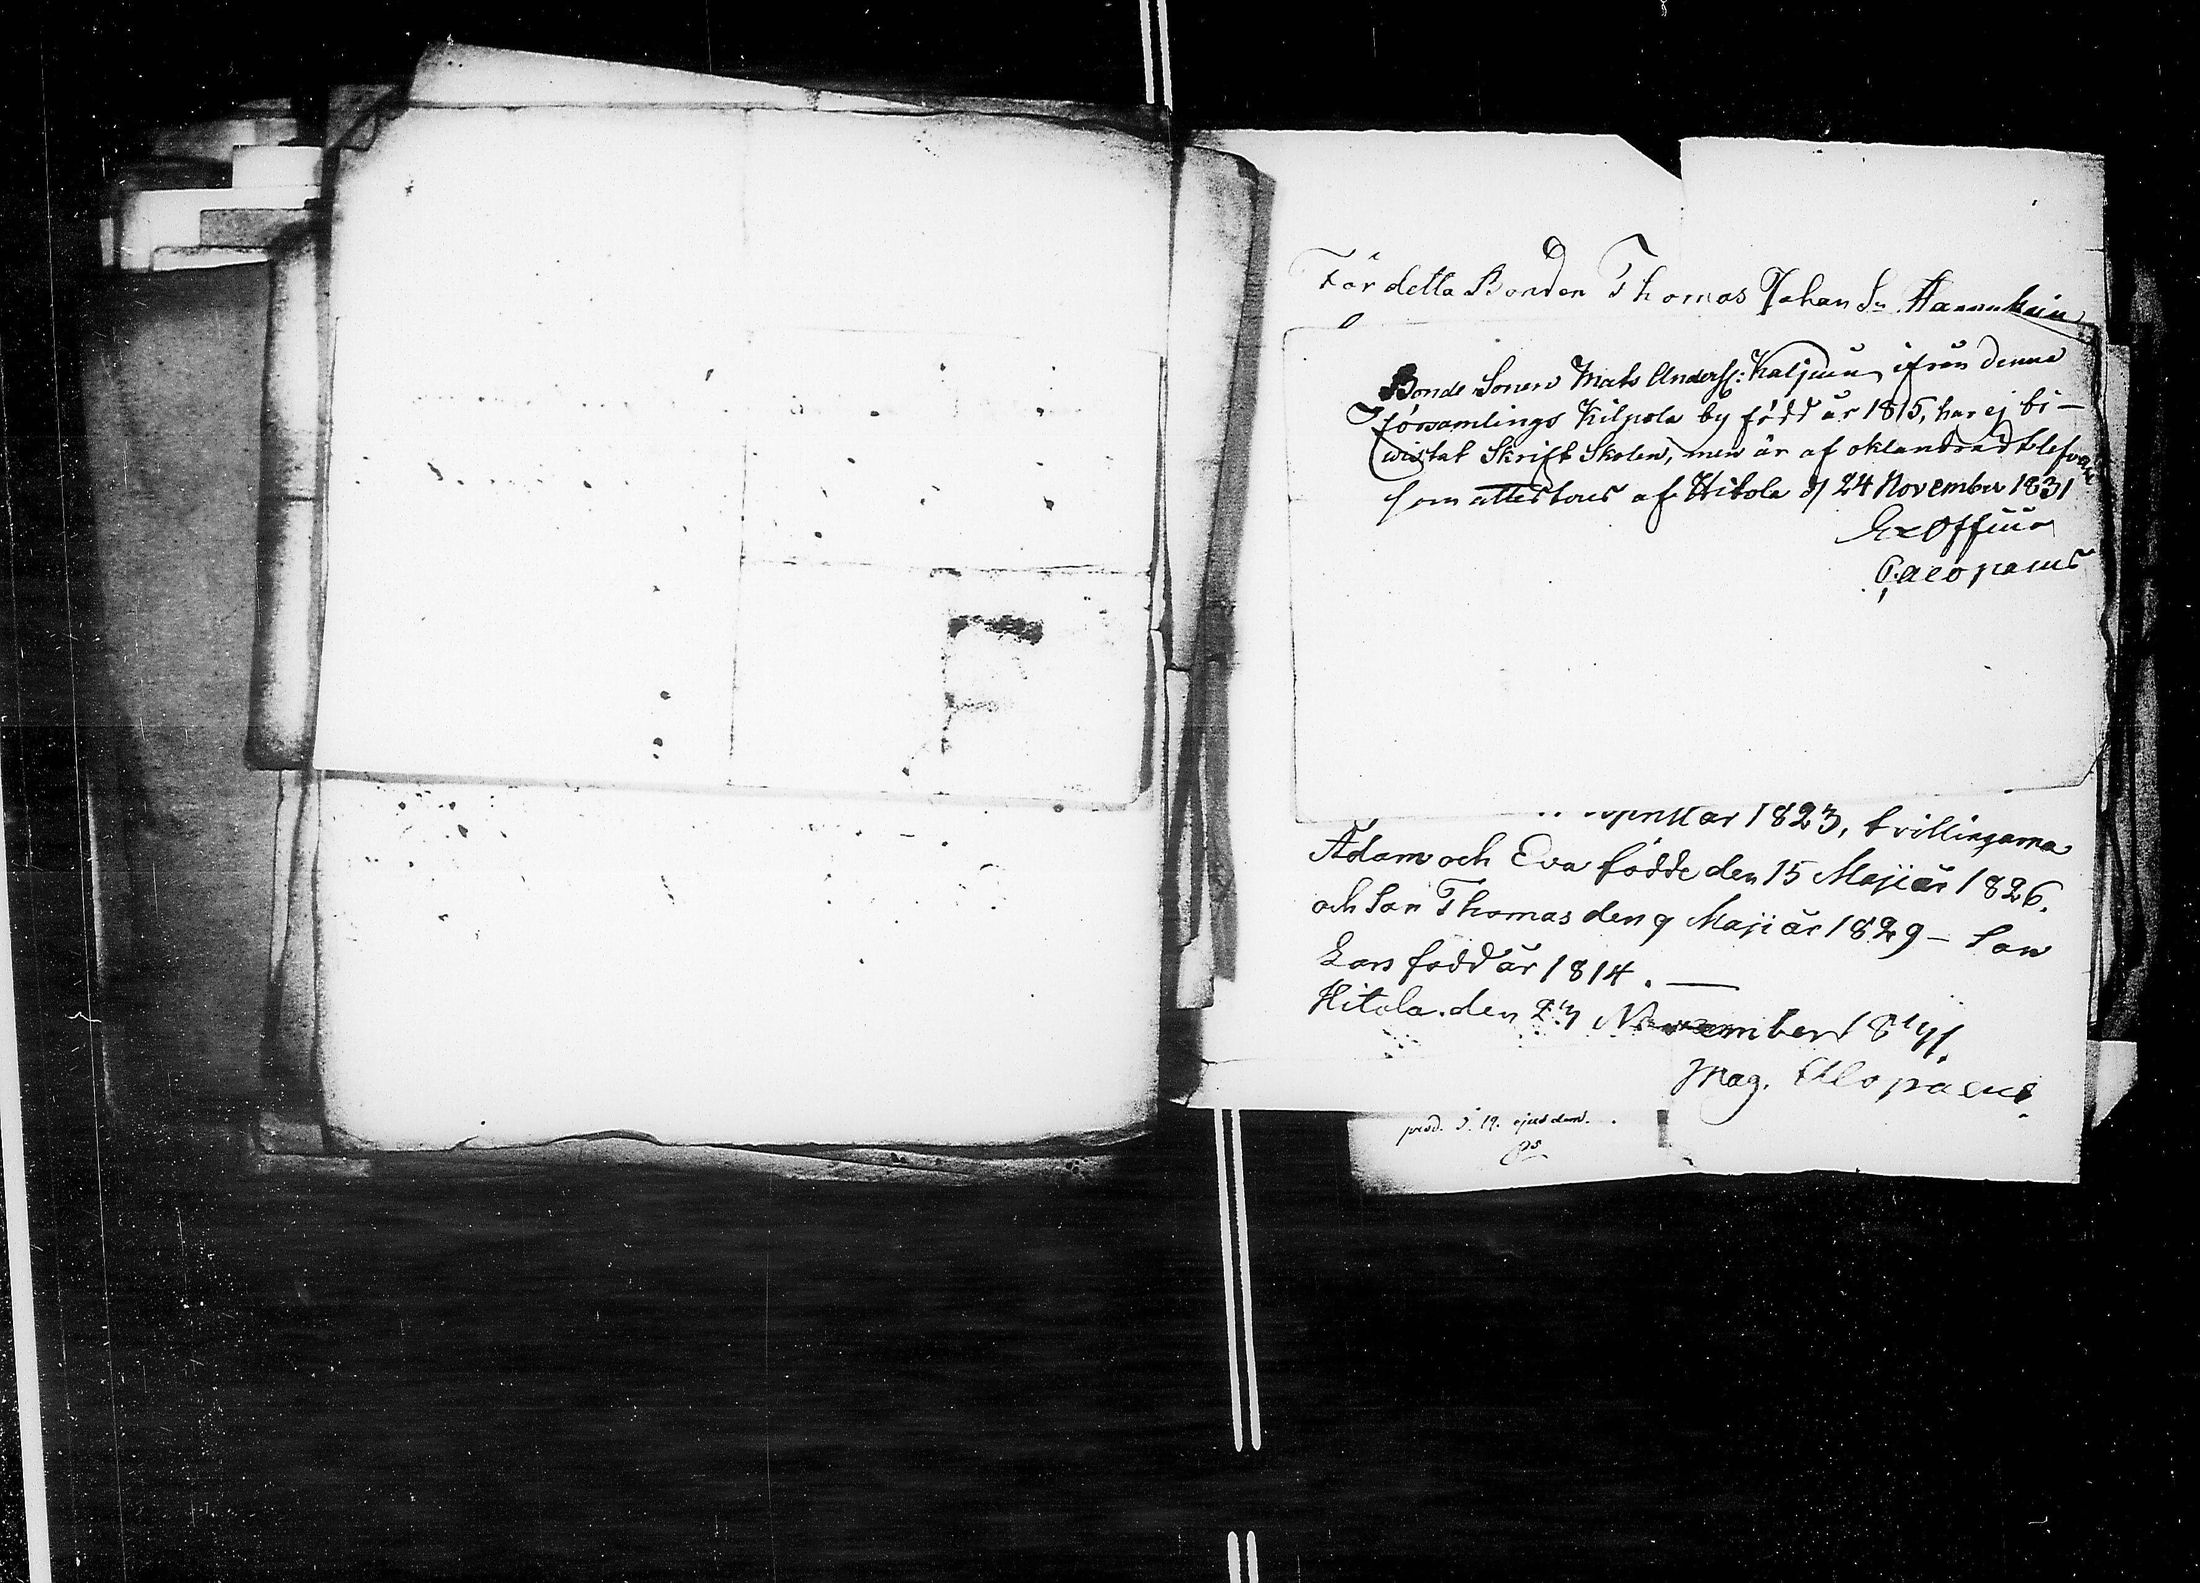 För detta Bonden Thomas Johan Sn Hannukain
Bonde Sonen Mats Anderss: Kaljuin ifrån denna
församlings Kilpola by född år 1815, har ej bi-
wistat Skrift Skolen, men är af oklandradt lefwerne
som attesteras af Hitola d/ 24 November 1831
Ex Officio
Alopaeus
år 1823, tvillingarna
Adam och Eva födde den 15 Maji år 1826.
och Son Thomas den 9 Maji år 1829 – Son
Lars född år 1814. —
Hitola den 23 November 1841.
Mag. Alopaeus.
prod. d. 19. ejusdem.